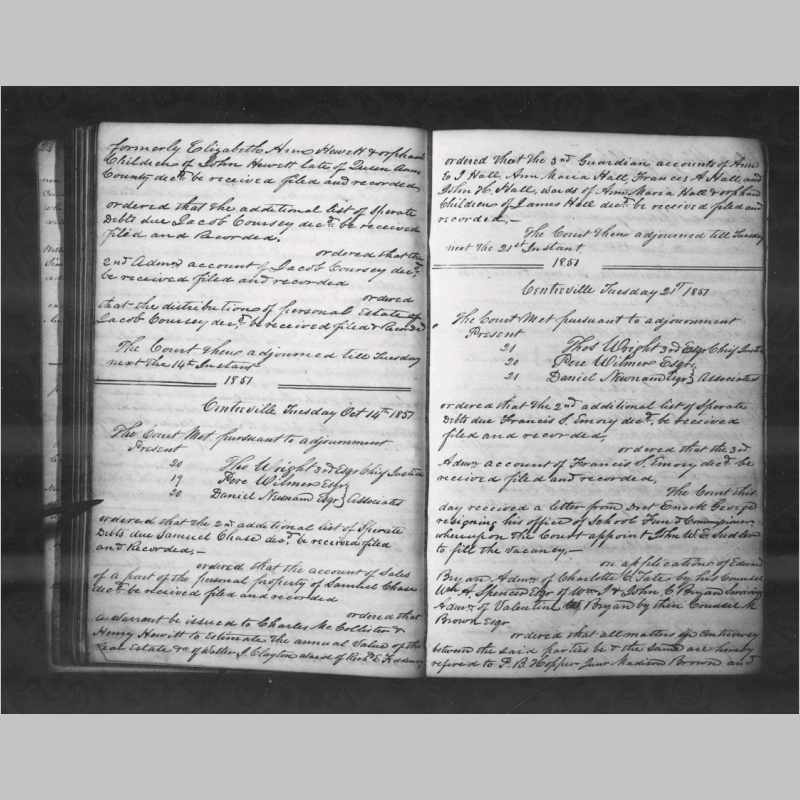 formerly Elizabeth Ann Hewett & orphan
Children of John Hewett late of Queen Ann
County decd. be received filed and recorded
ordered that the additional list of Sperate
Debts due Jacob Coursey decd. be received
filed and Recorded.
ordered that the
2nd Admrs account of Jacob Coursey decd.
be received filed and recorded
ordered
that the distributions of personal Estate of
Jacob Coursey decd. be received filed & Recorded
The Court then adjourned till Tuesday
next the 14th Instant
1851
Centreville Tuesday Oct 14th 1851
The Court Met pursuant to adjournment
Present
20 Thos Wright 3rd Esqr Chief Justice
19 Pere Wilmer Esqr
20 Daniel Newnam Esqr } Associates
ordered that the 2nd additional list of Sperate
Debts due Samuel Chase decd. be received filed
and Recorded,—
ordered that the account of Sales
of a part of the personal property of Samuel Chase
decd. be received filed and recorded
ordered that
a Warrant be issued to Charles McCollister &
Henry Hewitt to Estimate the annual Value of the
Real Estate &c of Walter J. Clayton ward of Richd E.
ordered that the 3rd Guardian accounts of Ann
E J Hall, Ann Maria Hall, Frances A Hall and
John H. Hall, wards of Ann Maria Hall & orphan
Children of James Hall decd. be received filed and
recorded,—
The Court then adjourned till Tuesday
next the 21st Instant
1851
Centreville Tuesday 21st 1851
The Court Met pursuant to adjournment
Present
21 Thos Wright 3rd Esqr Chief Justice
20 Pere Wilmer Esqr
21 Daniel Newnam Esqr } Associates
ordered that the 2nd additional list of Sperate
Debts due Francis S. Emory decd. be received
filed and recorded,
ordered that the 3rd
Admrs account of Francis S. Emory decd. be
received filed and recorded,
The Court this
day received a letter from Doct Enoch George
resigning his office of School Fund Commissioner
whereupon the Court appoint John W. E. Sudler
to fill the Vacancy,—
on application of Edward
Bryan Admr. of Charlotte C. Tate by his Counsel
Wm A. Spencer Esqr of Wm J & John C Bryan surviving
Admrs of Valentine Bryan by their Counsel M
Brown Esqr
ordered that all matters of controversy
between the said parties be & the same are hereby
refered to P. B. Hopper Junr Madison Brown and